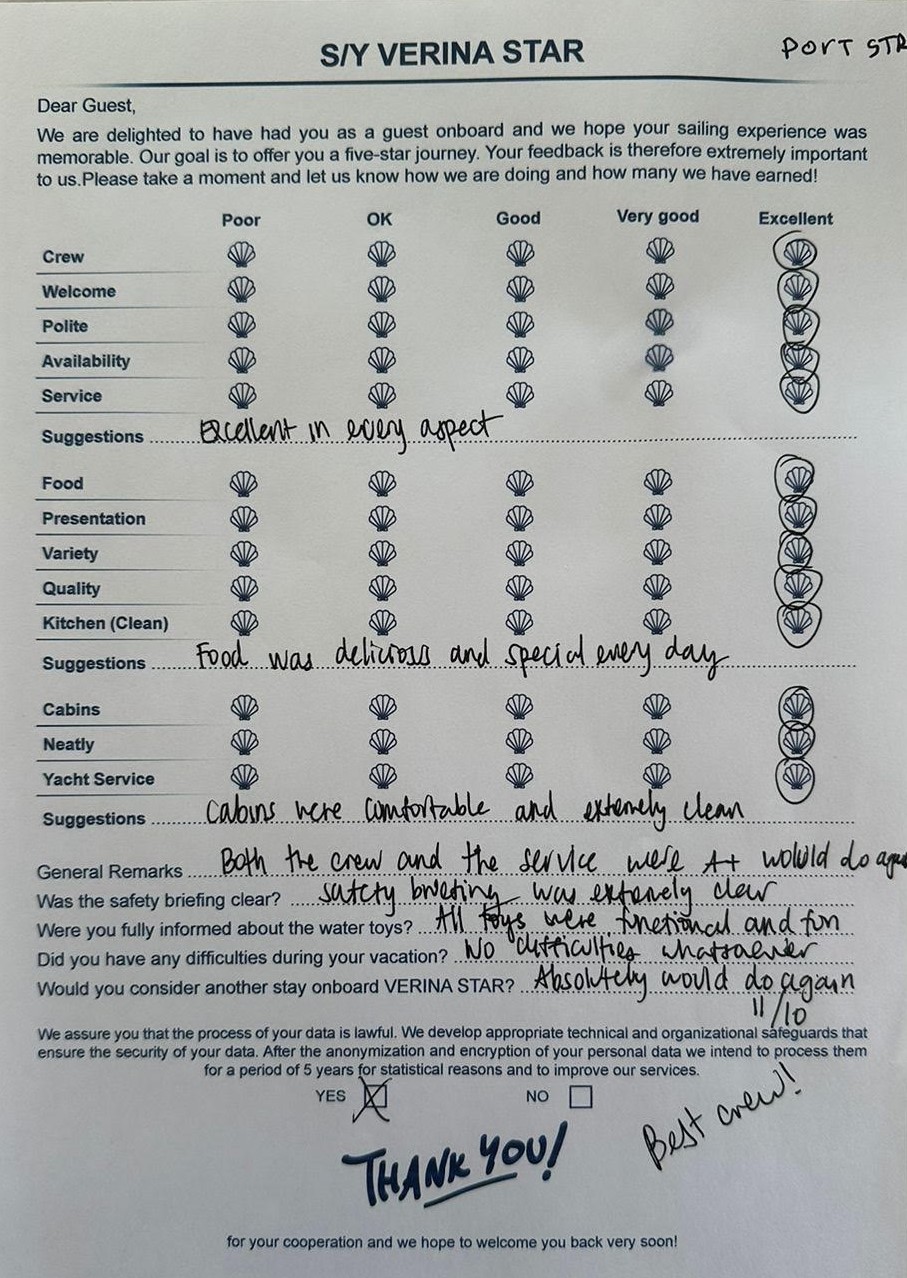 S/Y VERINA STAR
PORT STR
Dear Guest,
We are delighted to have had you as a guest onboard and we hope your sailing experience was
memorable. Our goal is to offer you a five-star journey. Your feedback is therefore extremely important
to us.Please take a moment and let us know how we are doing and how many we have earned!
Poor OK Good Very good Excellent
Crew
Welcome
Polite
Availability
Service
Suggestions Excellent in every aspect
Food
Presentation
Variety
Quality
Kitchen (Clean)
Suggestions Food was delicioss and special every day
Cabins
Neatly
Yacht Service
Suggestions Cabins were comfortable and extremely clean
General Remarks Both the crew and the service were A+ would do again
Was the safety briefing clear? safety briefing was extremely clear
Were you fully informed about the water toys? All toys were functional and fun
Did you have any difficulties during your vacation? No difficulties whatsoever
Would you consider another stay onboard VERINA STAR? Absolutely would do again
11/10
We assure you that the process of your data is lawful. We develop appropriate technical and organizational safeguards that
ensure the security of your data. After the anonymization and encryption of your personal data we intend to process them
for a period of 5 years for statistical reasons and to improve our services.
YES NO
Best crew!
THANK YOU!
for your cooperation and we hope to welcome you back very soon!